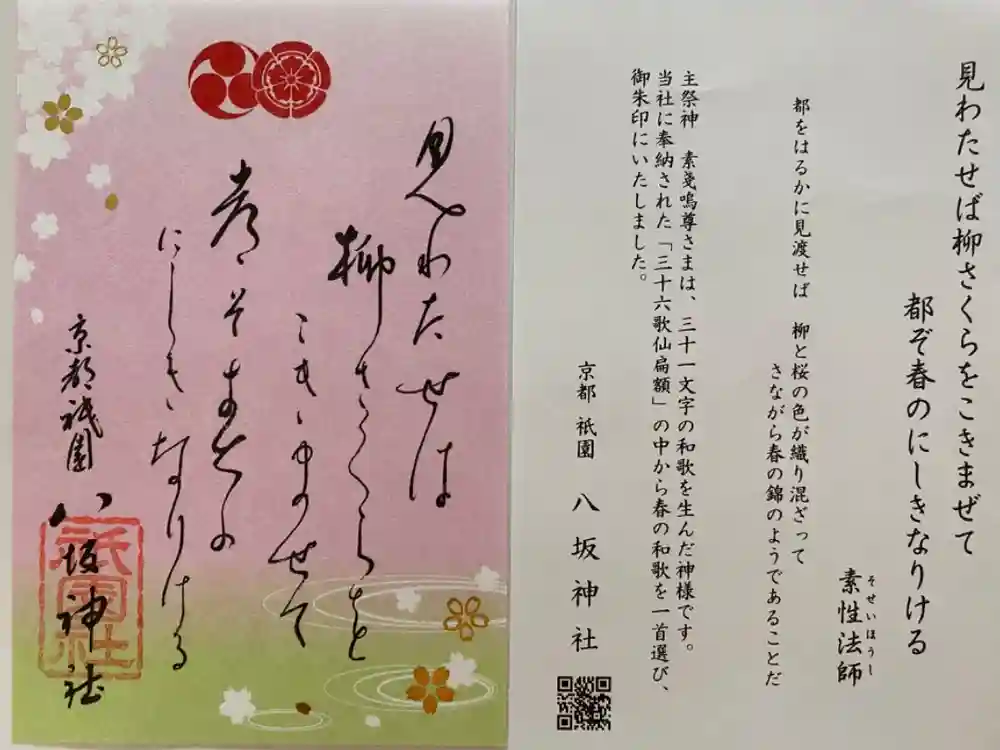 見わたせば柳さくらをこきまぜて
都ぞ春のにしきなりける
素性法師
そせいほうし
都をはるかに見渡せば　柳と桜の色が織り混ざって
さながら春の錦のようであることだ
主祭神　素戔嗚尊さまは、三十一文字の和歌を生んだ神様です。
当社に奉納された「三十六歌仙扁額」の中から春の和歌を一首選び、
御朱印にいたしました。
京都 祇園　八坂神社
見わたせは
柳さくらを
こきませて
都そ春の
にしきなりける
京都祇園
八坂神社
祇園社